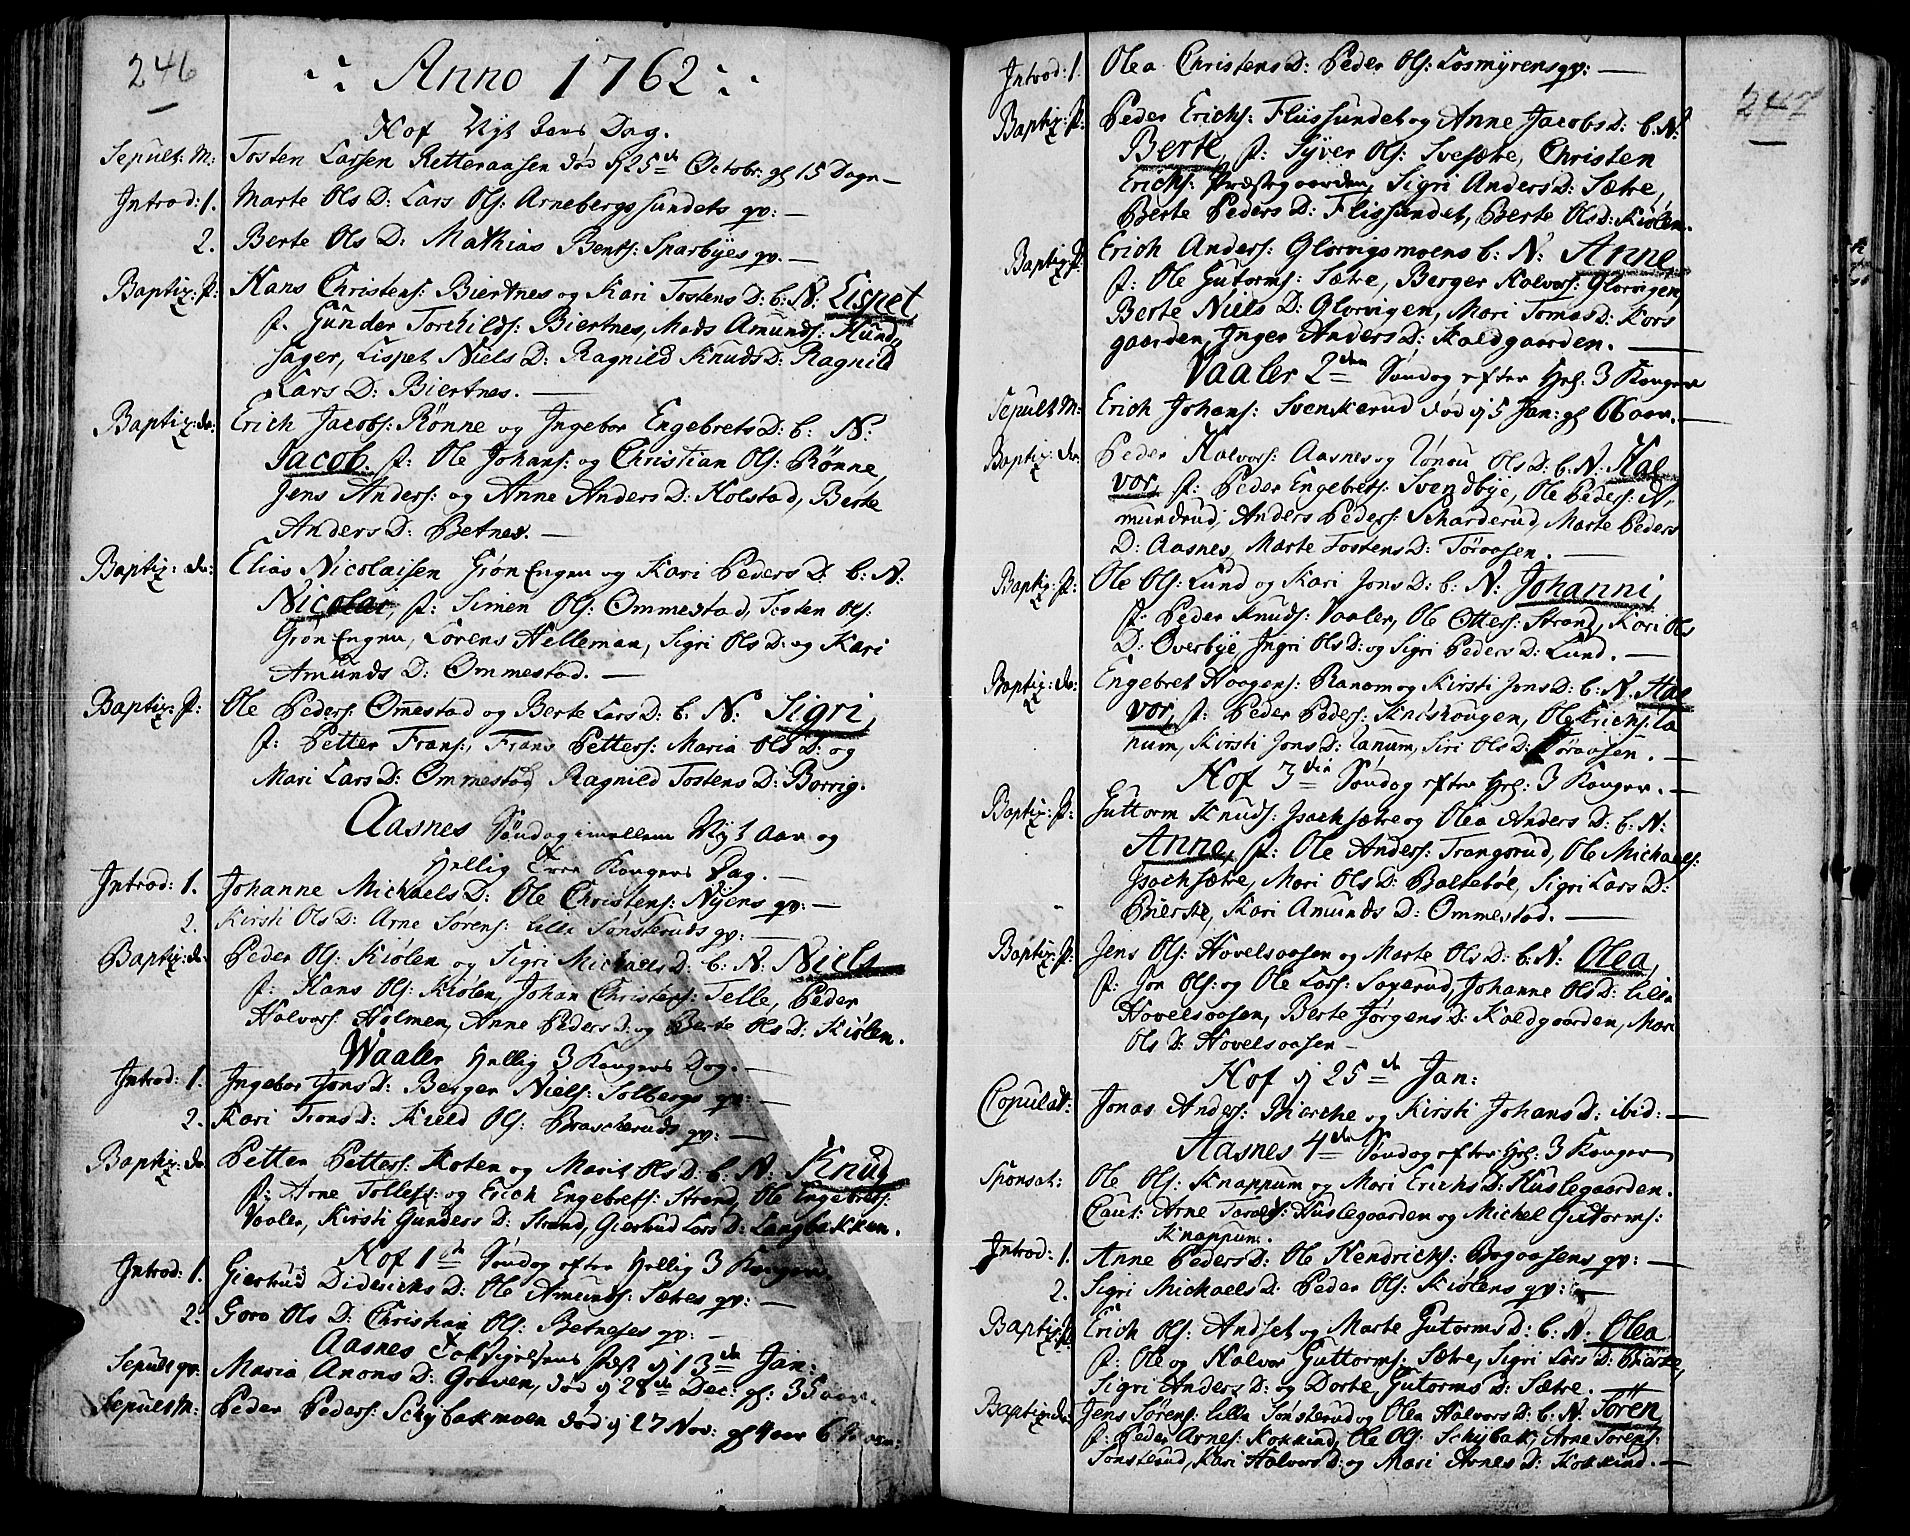 246
Anno 1762
Hof Nyt Aars Dag.
Sepult: M: Tosten Larsen Retteraasen død d 25de Octobr: gl 15 Dage
Introd: 1. Marte Ols D: Lars Ols: Arnebergssundets qv:
2. Berte Ols D: Mathias Bents: Sparbyes qv.
Baptiz: P: Hans Christens: Biertnes og Kari Tostens D: b: N: Lispet,
P. Gunder Torchilds: Biertnes, Mads Amunds: Hund
sager, Lispet Niels D: Ragnild Knuds D: Ragnild
Lars D: Biertnes.
Baptiz: do: Erich Jacobs: Rönne og Ingebor Engebrets D: b: N:
Jacob. P: Ole Johans: og Christian Ols: Rönne,
Jens Anders: og Anne Anders D: Holstad, Berte
Anders D: Betnes.
Baptiz: do: Elias Nicolaisen Grön Engen og Kari Peders D: b: N:
Nicolai, P: Simen Ols: Ommestad, Tosten Ols:
Grön Engen, Lorens Helleman, Sigri Ols D: og Kari
Amunds D: Ommestad.
Baptiz: P: Ole Peders: Omestad og Berte Lars D: b: N: Sigri,
P: Petter Frans:, Frans Petters: Maria Ols D: og
Mari Lars D: Ommestad, Ragnild Tostens D: Borrig.
Aasnes Söndag imellem Nyt Aar og
Hellig Tree Kongers Dag.
Introd: 1. Johanne Michaels D: Ole Christens: Nyens qv:
2. Kirsti Ols D: Arne Sørens: Lille Sønsteruds qv:
Baptiz: do: Peder Ols: Kiølen og Sigri Michaels D: b: N: Niels
P: Hans Ols: Kiølen, Johan Christens: Telle, Peder
Halvors: Holmen, Anne Peders D: og Berte Ols D: Kiølen.
Waaler Hellig 3 Kongers Dag.
Introd: 1. Ingebor Jons D: Berger Niels: Solbergs qv:
2. Kari Trons D: Kield Ols: Brascheruds qv:
Baptiz: do Petter Petters: Koten og Marit Ols D: b: N: Knud
P: Arne Tollefs: og Erich Engebrets: Strand, Ole Engebrets:
Vaaler, Kirsti Gunders D: Strand, Giertrud Lars D: Langbakken.
Hof 1te Søndag efter Hellig 3 Konger.
Introd: 1. Giertrud Didericks D: Ole Amunds: Sætres qv:
2. Goro Ols D: Christian Ols: Betneses qv:
Aasnes Tacksigelsens Fæst d 13de Jan:
Sepult qv: Maria Arons D: Graven, død d 28de Dec: gl: 35 aar.
Sepult M: Peder Peders: Schybakmoen død d 27 Nov: gl 4 aar 6
247
Introd: 1. Olea Christens D: Peder Ols: Losmyrens qv:
Baptiz: P: Peder Erichs: Flissundet og Anne Jacobs D: b: N:
Berte, P: Syver Ols: Svesætre, Christen
Erichs: Præstegaarden, Sigri Anders D: Sætre,
Berte Peders D: Flissundet, Berte Ols D: Kiølen.
Baptiz: P: Erich Anders: Glorvigsmoens b: N: Anne
P: Ole Gutorms: Sætre, Berger Halvors: Glorvigen,
Berte Niels D: Glorvigen, Mari Tomas D: Kors
gaarden, Inger Anders D: Koldgaarden.
Vaaler 2den Søndag efter Hel: 3 Konger
Sepult M: Erich Johans: Svenskerud død d 5 Jan: gl 66 aar.
Baptiz: do: Peder Halvors: Aasnes og Ols D: b: N: Hal
vor, P: Peder Engebrets: Svendbye, Ole Peders: A,
mundrud, Anders Peders: Scharderud, Marte Peders
D: Aasnes, Marte Tostens D: Töraasen.
Baptiz: P: Ole Ols: Lund og Kari Jons D: b: N: Johanni,
P: Peder Knuds: Vaaler, Ole Ottes: Strand, Kari Ols
D: Overbye, Ingri Ols D: og Sigri Peders D: Lund.
Baptiz: do: Engebret Haagens: Ranom og Kirsti Jons D: b: N: Hal
vor, P: Peder Peders: Knishougen, Ole Erichs: Ta
num, Kirsti Jons D: Tanum, Siri Ols D: Töraasen.
Hof 3die Søndag efter Hel: 3 Konger.
Baptiz: P: Guttorm Knuds: Isachsætre og Olea Anders D: b: N:
Anne, P: Ole Anders: Trangsrud, Ole Michaels:
Isachsætre, Mari Ols D: Baltebøl, Sigri Lars D:
Bierke, Kari Amunds D: Ommestad.
Baptiz: P: Jens Ols: Hovelsaasen og Marte Ols D: b: N: Olea,
P: Jon Ols: og Ole Lars: Saxerud, Johanne Ols D: Lille
Hovelsaasen, Berte Jørgens D: Koldgaarden, Mari
Ols D: Hovelsaasen
Hof d 25de Jan:
Copulat: Jonas Anders: Bierche og Kirsti Johans D: ibid:
Aasnes 4de Søndag efter Hel: 3 Konger
Sponsat: Ole Ols: Knappum og Mari Erichs D: Huslegaarden.
Caut: Arne Tarals: Huslegaarden og Michel Gutorms:
Knappum.
Introd: 1. Anne Peders D: Ole Hendrichs: Bogaasens qv:
2. Sigri Michaels D: Peder Ols: Kiølens qv:
Baptiz: P: Erich Ols: Andset og Marte Gutorms D: b: N: Olea
P: Ole og Halvor Guttorms: Sætre, Sigri Lars D: Bierke,
Sigri Anders D: og Dorte Gutorms D: Sætre.
Baptiz: do: Jens Sørens: Lille Sønsterud og Olea Halvors D: b: N: Sören,
P: Peder Arnes: Kokkind, Ole Ols: Schybak, Arne Sørens:
Sønsterud, Kari Halvors D: og Mari Arnes D: Kokkind.